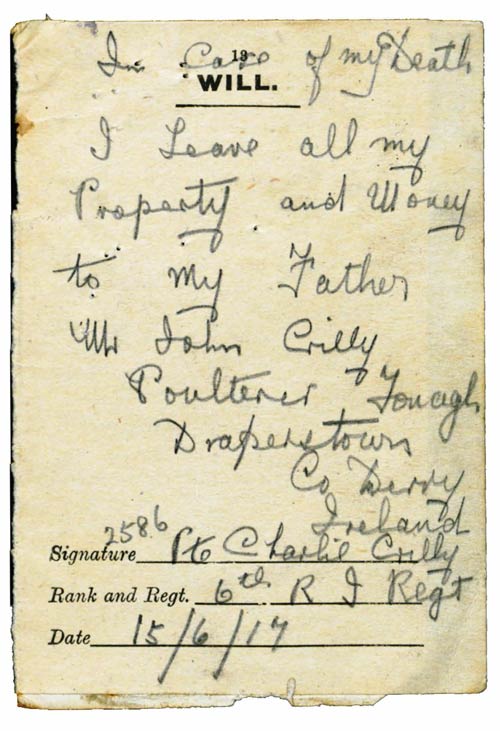 In Case of my Death
13
WILL.
I Leave all my
Property and Money
to my Father
Mr John Crilly
Poulterer Tonagh
Draperstown
Co Derry
Ireland
2586
Signature Pte Charlie Crilly
Rank and Regt. 6th R I Regt
Date 15/6/17